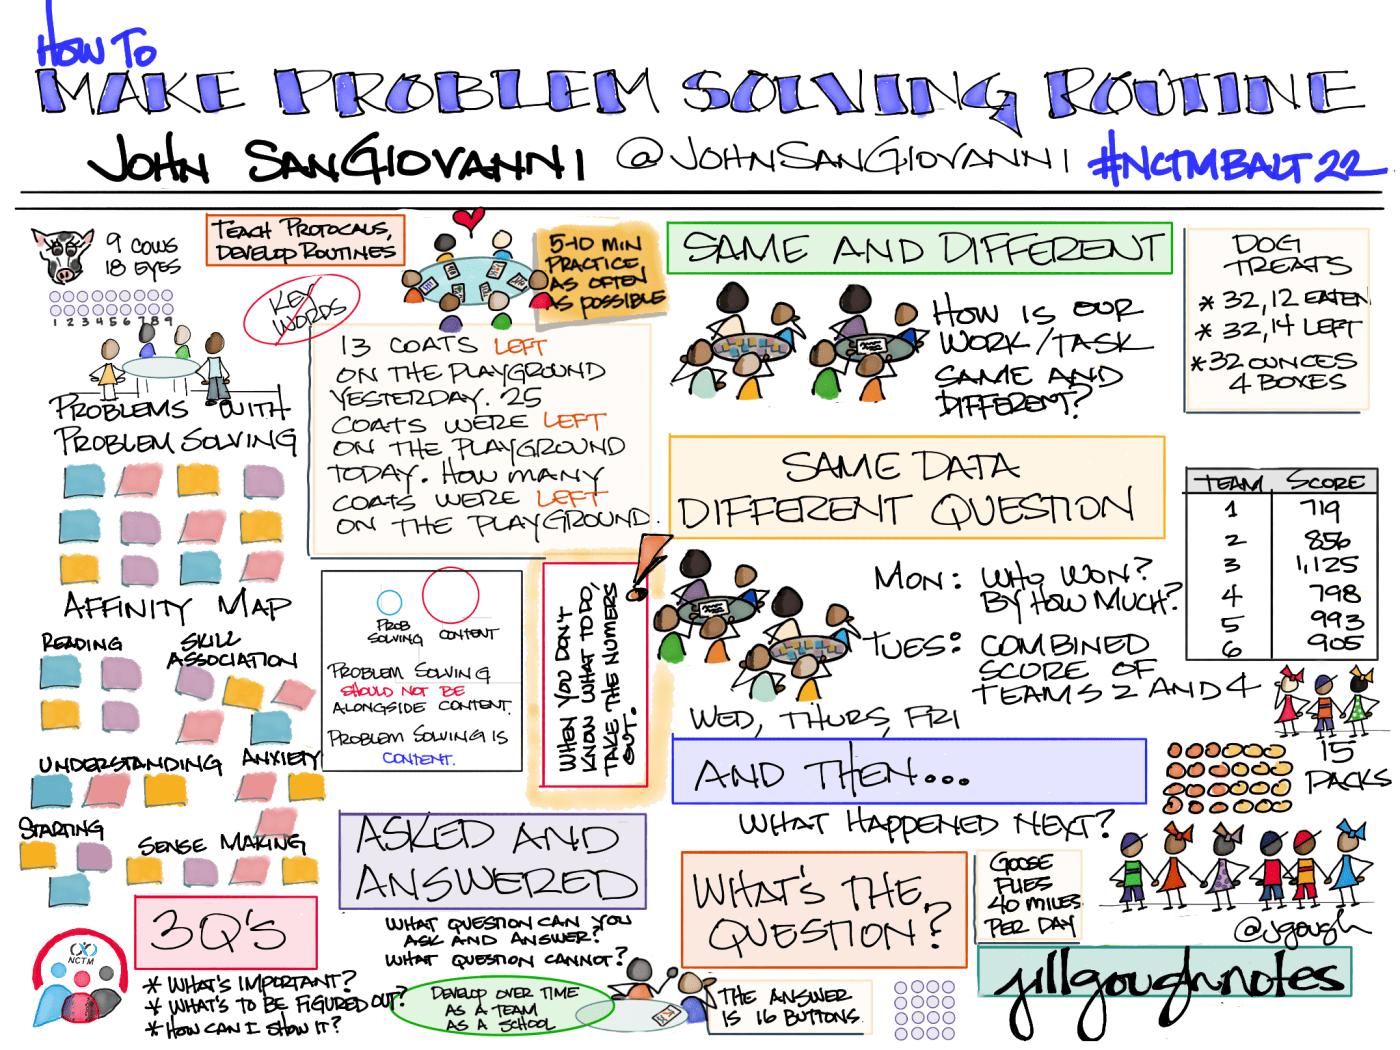 HOW TO
MAKE PROBLEM SOLVING ROUTINE
JOHN SANGIOVANNI @JOHNSANGIOVANNI #NCTMBALT22
9 COWS
18 EYES
1 2 3 4 5 6 7 8 9
TEACH PROTOCALS,
DEVELOP ROUTINES
KEY
WORDS
5-10 MIN
PRACTICE
AS OFTEN
AS POSSIBLE
13 COATS LEFT
ON THE PLAYGROUND
YESTERDAY. 25
COATS WERE LEFT
ON THE PLAYGROUND
TODAY. HOW MANY
COATS WERE LEFT
ON THE PLAYGROUND.
PROBLEMS WITH
PROBLEM SOLVING
AFFINITY MAP
READING
SKILL
ASSOCIATION
UNDERSTANDING
ANXIETY
STARTING
SENSE MAKING
PROB
SOLVING
CONTENT
PROBLEM SOLVING
SHOULD NOT BE
ALONGSIDE CONTENT.
PROBLEM SOLVING IS
CONTENT.
WHEN YOU DON'T
KNOW WHAT TO DO,
TAKE THE NUMBERS
OUT.
3Q'S
* WHAT'S IMPORTANT?
* WHAT'S TO BE FIGURED OUT?
* HOW CAN I SHOW IT?
NCTM
ASKED AND
ANSWERED
WHAT QUESTION CAN YOU
ASK AND ANSWER?
WHAT QUESTION CANNOT?
DEVELOP OVER TIME
AS A TEAM
AS A SCHOOL
SAME AND DIFFERENT
HOW IS OUR
WORK/TASK
SAME AND
DIFFERENT?
DOG
TREATS
* 32, 12 EATEN
* 32, 14 LEFT
* 32 OUNCES
4 BOXES
SAME DATA
DIFFERENT QUESTION
MON: WHO WON?
BY HOW MUCH?
TUES: COMBINED
SCORE OF
TEAMS 2 AND 4
WED, THURS, FRI
TEAM SCORE
1 719
2 856
3 1,125
4 798
5 993
6 905
AND THEN...
WHAT HAPPENED NEXT?
15
PACKS
WHAT'S THE
QUESTION?
THE ANSWER
IS 16 BUTTONS.
GOOSE
FLIES
40 MILES
PER DAY
@jgough
jillgoughnotes